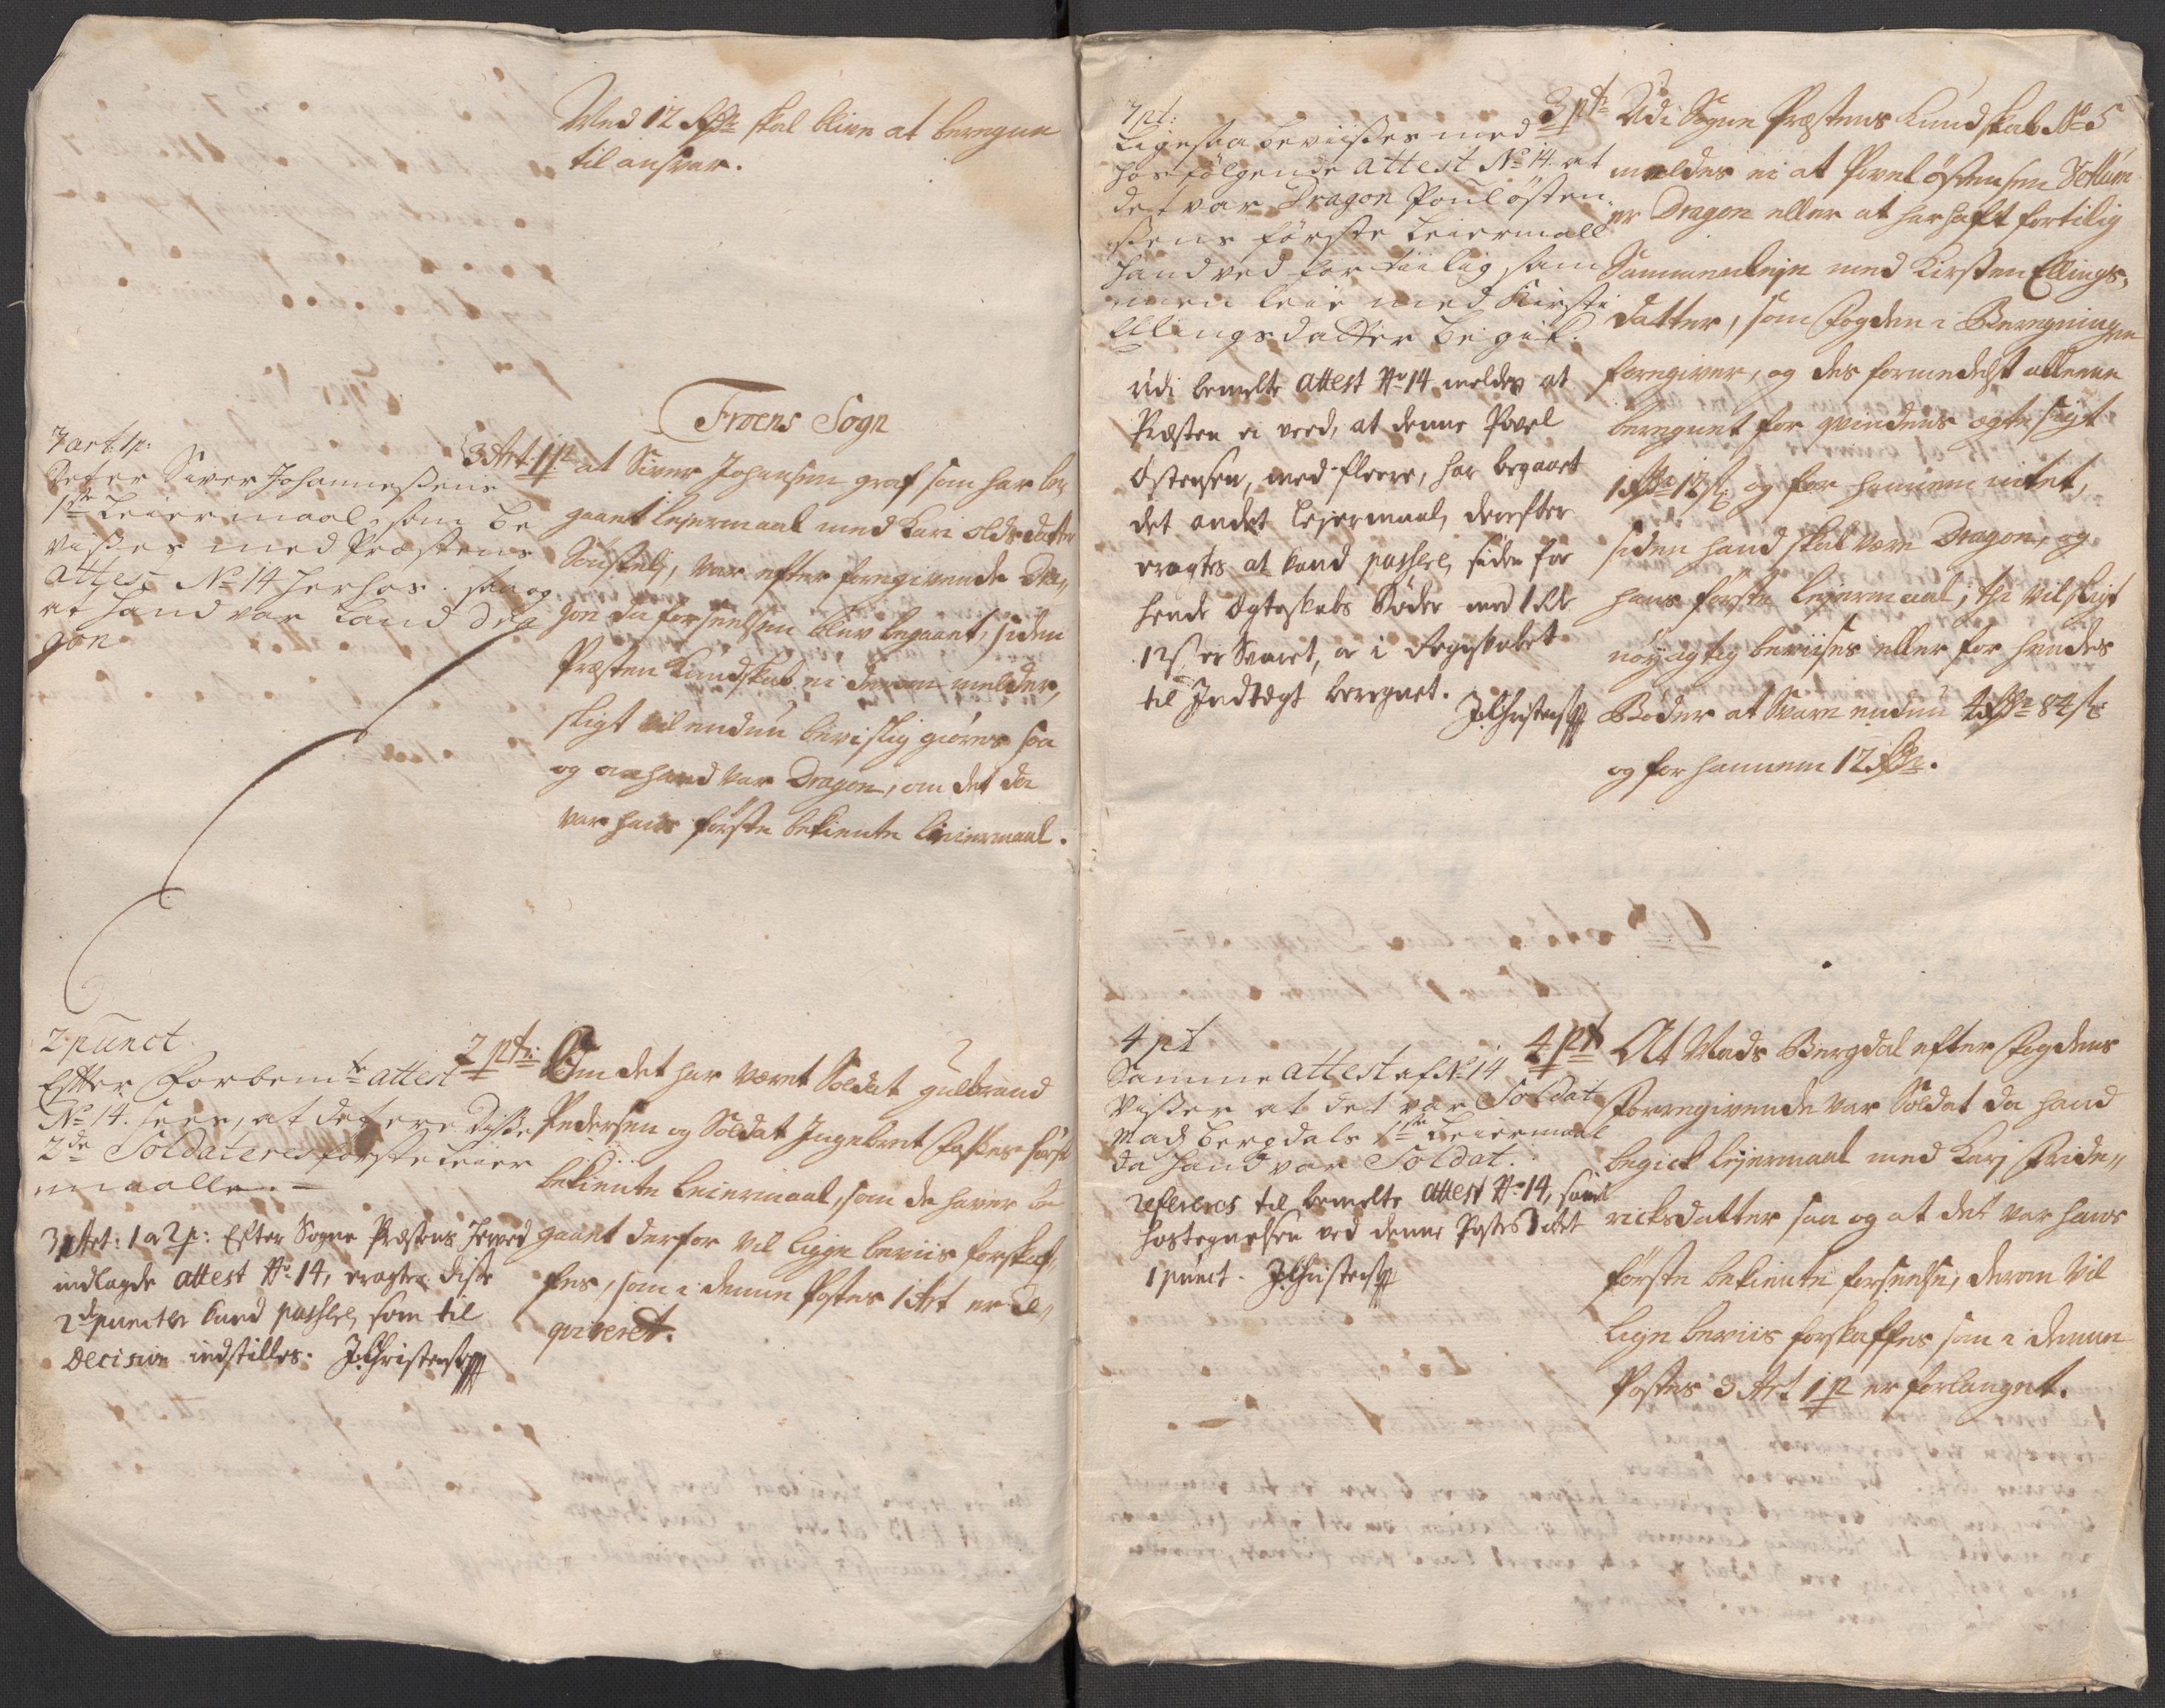 Med 12 Rdr skal blive at beregne
til ansvar.
Froens Sogn
3 art. 1 p:
Det er Siver Johannessens
1ste Leiermaal, som be
visses med Præstens
attest No 14 herhos. saa og
at hand var Land Dra
gon
3 Art: 1 p: at Siver Johansen graf som har be,
gaaet lejermaal med Kari Olds datter
var efter foregivende Dra,,
gon da forseelsen blev begaaet, siden
Præsten Kundskab ei derom melder,
sligt vil endnu bevislig giøres saa
og at hand var Dragon, om det da
var hans første bekiente leiermaal.
2 punct
Efter Forbemte attest
No 14. sees, at det ere disse
2de Soldateres første Leier
maalle. -
3 Art: 1 a 2 p: Efter Sogne Præstens herved
indlagde attest No 14, eragtes disse
2de puncter kand passere, som til
Decision indstilles. J. Christensen
2 pt: Om det har været Soldat gulbrand
Pedersen og Soldat Ingebret første
bekiente leiermaal, som de haver be
gaaet derfor vil lige beviis forskaf,,
fes, som i denne Postes 1 Art er De,,
cideret.
3 pt:
Ligesaa bevisses med
hosfølgende attest No 14. at
det var Dragon Poul østen
sens første Leiermaall
hand ved for tiilig sam
men leie med Kirsti
Ellingsdatter begik.
Udi bemelte attest No 14 meldes at
Præsten ei veed, at denne Povel
Østensen, med fleere, har begaaet
det andet lejermaal, derefter
eragtes at kand passere, siden for
hende Ægteskabs Bøder med 1 Rdr
12 s er Svaret, og i Regnskabet
til Indtægt beregnet.
J. Christensen
3 pt: Udi Sogne Præstens Kundskab No 5
meldes ei at Povel østensen
er Dragon eller at har haft fortilig
Sammenleje med Kirsten Ellings,
datter, som Fogden i Beregningen
foregiver, og des formedelst alleene
beregnet for qvindens ægte sigt
1 Rdr 12 s: og for hannem intet,
siden hand skal være Dragon, og
hans første lejermaal; thi vil sligt
nøyagtig beviises eller for hendes
Bøder at Svare endnu 4 Rdr 84 s:
og for hannem 12 Rdr.
4 pt
Samme attest af No 14
visser at det var Soldat
Mads Bergdals 1ste Leiermaal
da hand var Soldat.
refereres til bemelte attest No 14, samt
hostegnelsen ved denne Postes 3 Art
1 punct. J. Christensen
4 pt At Mads Bergdal efter Fogdens
Foregivende var Soldat da hand
begick lejermaal med Karj Fride,,
ricksdatter saa og at det var hans
første bekiente forseelse, derom vil
lige beviis forskaffes som i denne
Postes 3 Art 1 p er forlanget.